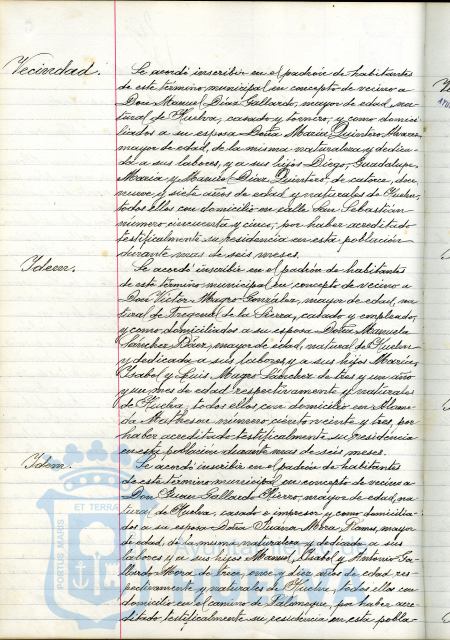 Vecindad.
Se acordó inscribir en el padrón de habitantes
de este término municipal en concepto de vecino a
Don Manuel Díaz Gallardo, mayor de edad, na-
tural de Huelva, casado y tornero, y como domici-
liados a su esposa Doña María Quintero Álvarez
mayor de edad, de la misma naturaleza y dedica-
da a sus labores, y a sus hijos Diego, Guadalupe,
María y Manuel Díaz Quintero, de catorce, doce
nueve y siete años de edad y naturales de Huelva;
todos ellos con domicilio en calle San Sebastián
número cincuenta y cinco, por haber acreditado
testificalmente su residencia en esta población
durante mas de seis meses.
Idem.
Se acordó inscribir en el padrón de habitantes
de este término municipal en concepto de vecino a
Don Víctor Mugro González, mayor de edad, na-
tural de de la Sierra, casado y empleado,
y como domiciliados a su esposa Doña Manuela
Sánchez Báez, mayor de edad, natural de Huelva
y dedicada a sus labores, y a sus hijos María
Isabel y Luis Mugro Sánchez de tres y un año
y un mes de edad respectivamente y naturales
de Huelva, todos ellos con domicilio en Alame-
da número ciento veinte y tres, por
haber acreditado testificalmente su residencia
en esta población durante mas de seis meses.
Idem.
Se acordó inscribir en el padrón de habitantes
de este término municipal en concepto de vecino a
Don Juan Gallardo Fierro, mayor de edad, na-
tural de Huelva, casado e impresor y como domicilia-
dos a su esposa Doña Juana Mora Ramos, mayor
de edad, de la misma naturaleza y dedicada a sus
labores y a sus hijos Manuel, Isabel y Antonio Ga-
llardo Mora de trece, once y diez años de edad res-
pectivamente y naturales de Huelva, todos ellos con
domicilio en el camino de Palomeque, por haber acre-
ditado testificalmente su residencia en esta pobla-
PORTUS MARIS
ET TERRAE
Ayuntamiento de